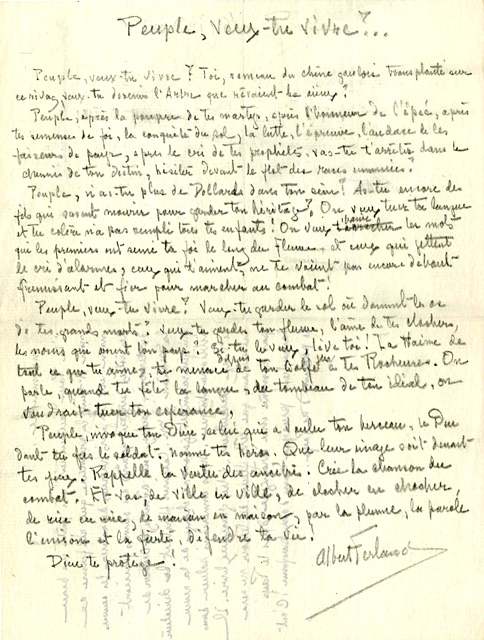 Peuple, veux-tu vivre?...
Peuple, veux-tu vivre? Toi, rameau du chêne gaulois transplanté sur
ce rivage, veux-tu devenir l'Arbre que rêvaient les aïeux?
Peuple, après la pourpre de tes martyrs, après l'honneur de l'épée, après
tes semeuses de foi, la conquête du sol, la lutte, l'épreuve, l'audace de tes
faiseurs de pays, après le cri de tes prophètes, vas-tu t'arrêter dans le
chemin de ton destin, hésiter devant le flot des races ennemies?
Peuple, n'as-tu plus de Dollards dans ton sein? As-tu encore des
fils qui savent mourir pour garder ton héritage? On veut tuer ta langue
et ta colère n'a pas remple tous tes enfants! On veut les mots
que les premiers ont semé ta foi le long du fleuve et ceux qui jettent
le cri d'alarme, ceux qui t'aiment, ne te voient pas encore debout
frémissant et fier pour marcher au combat!
Peuple, veux-tu vivre? Veux-tu garder le sol où dorment les os
de tes grands morts? Veux-tu garder ton fleuve, l'âme de tes clochers,
les noms qui sont ton pays? Si tu le veux, lève toi! La Haine de
tout ce que tu aimes, te menace depuis ton Golfe à tes Rocheuses. On
parle, quand tu fête ta langue, du tombeau de ton idéal, on
voudrait tuer ton espérance.
Peuple, invoque ton Dieu, celui qui a voulu ton berceau, le Dieu
dont tu fus le soldat. Nomme tes héros. Que leur image soit devant
tes yeux. Rappelle la vertu des ancêtres. Crie la chanson du
combat. Et vas, de ville en ville, de clocher en clocher,
de rue en rue, de maison en maison, par la plume, la parole,
l'union et la fierté, défendre ta vie.
Dieu te protège!
Albert Ferland